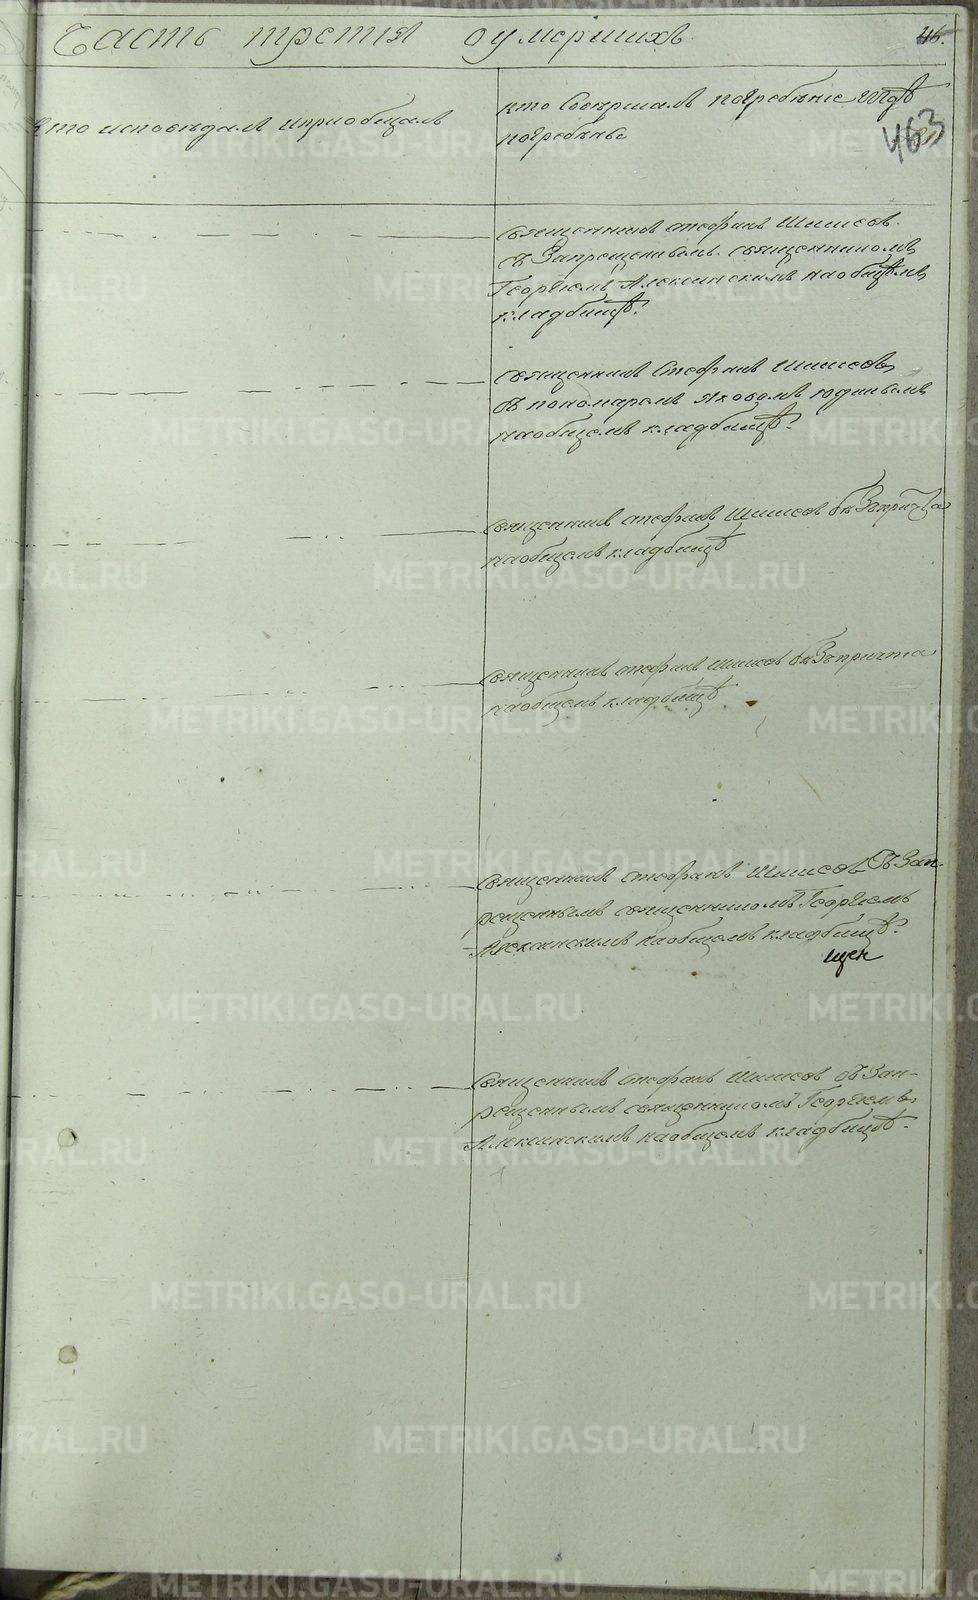 Часть третия о умершихъ
46.
463
Кто исповѣдалъ и приобщалъ
кто Совершалъ погребѣніе и гдѣ
погребѣны
Священникъ Стефанъ Шишовъ
съ Запрещеннымъ священникомъ
Георгіемъ Алексинскимъ на общемъ
кладбищѣ.
Священникъ Стефанъ Шишовъ
съ пономаремъ Яковомъ Юдинымъ
на общемъ кладбищѣ.
Священникъ Стефанъ Шишовъ безъ причта
на общемъ кладбищѣ
Священникъ Стефанъ Шишовъ безъ причта
на общемъ кладбищѣ
Священникъ Стефанъ Шишовъ Съ Зап-
рещеннымъ священникомъ Георгіемъ
Алексинскимъ на общемъ кладбищѣ.
щен
Священникъ Стефанъ Шишовъ съ Зап-
рещеннымъ священникомъ Георгіемъ
Алексинскимъ на общемъ кладбищѣ.
METRIKI.GASO-URAL.RU